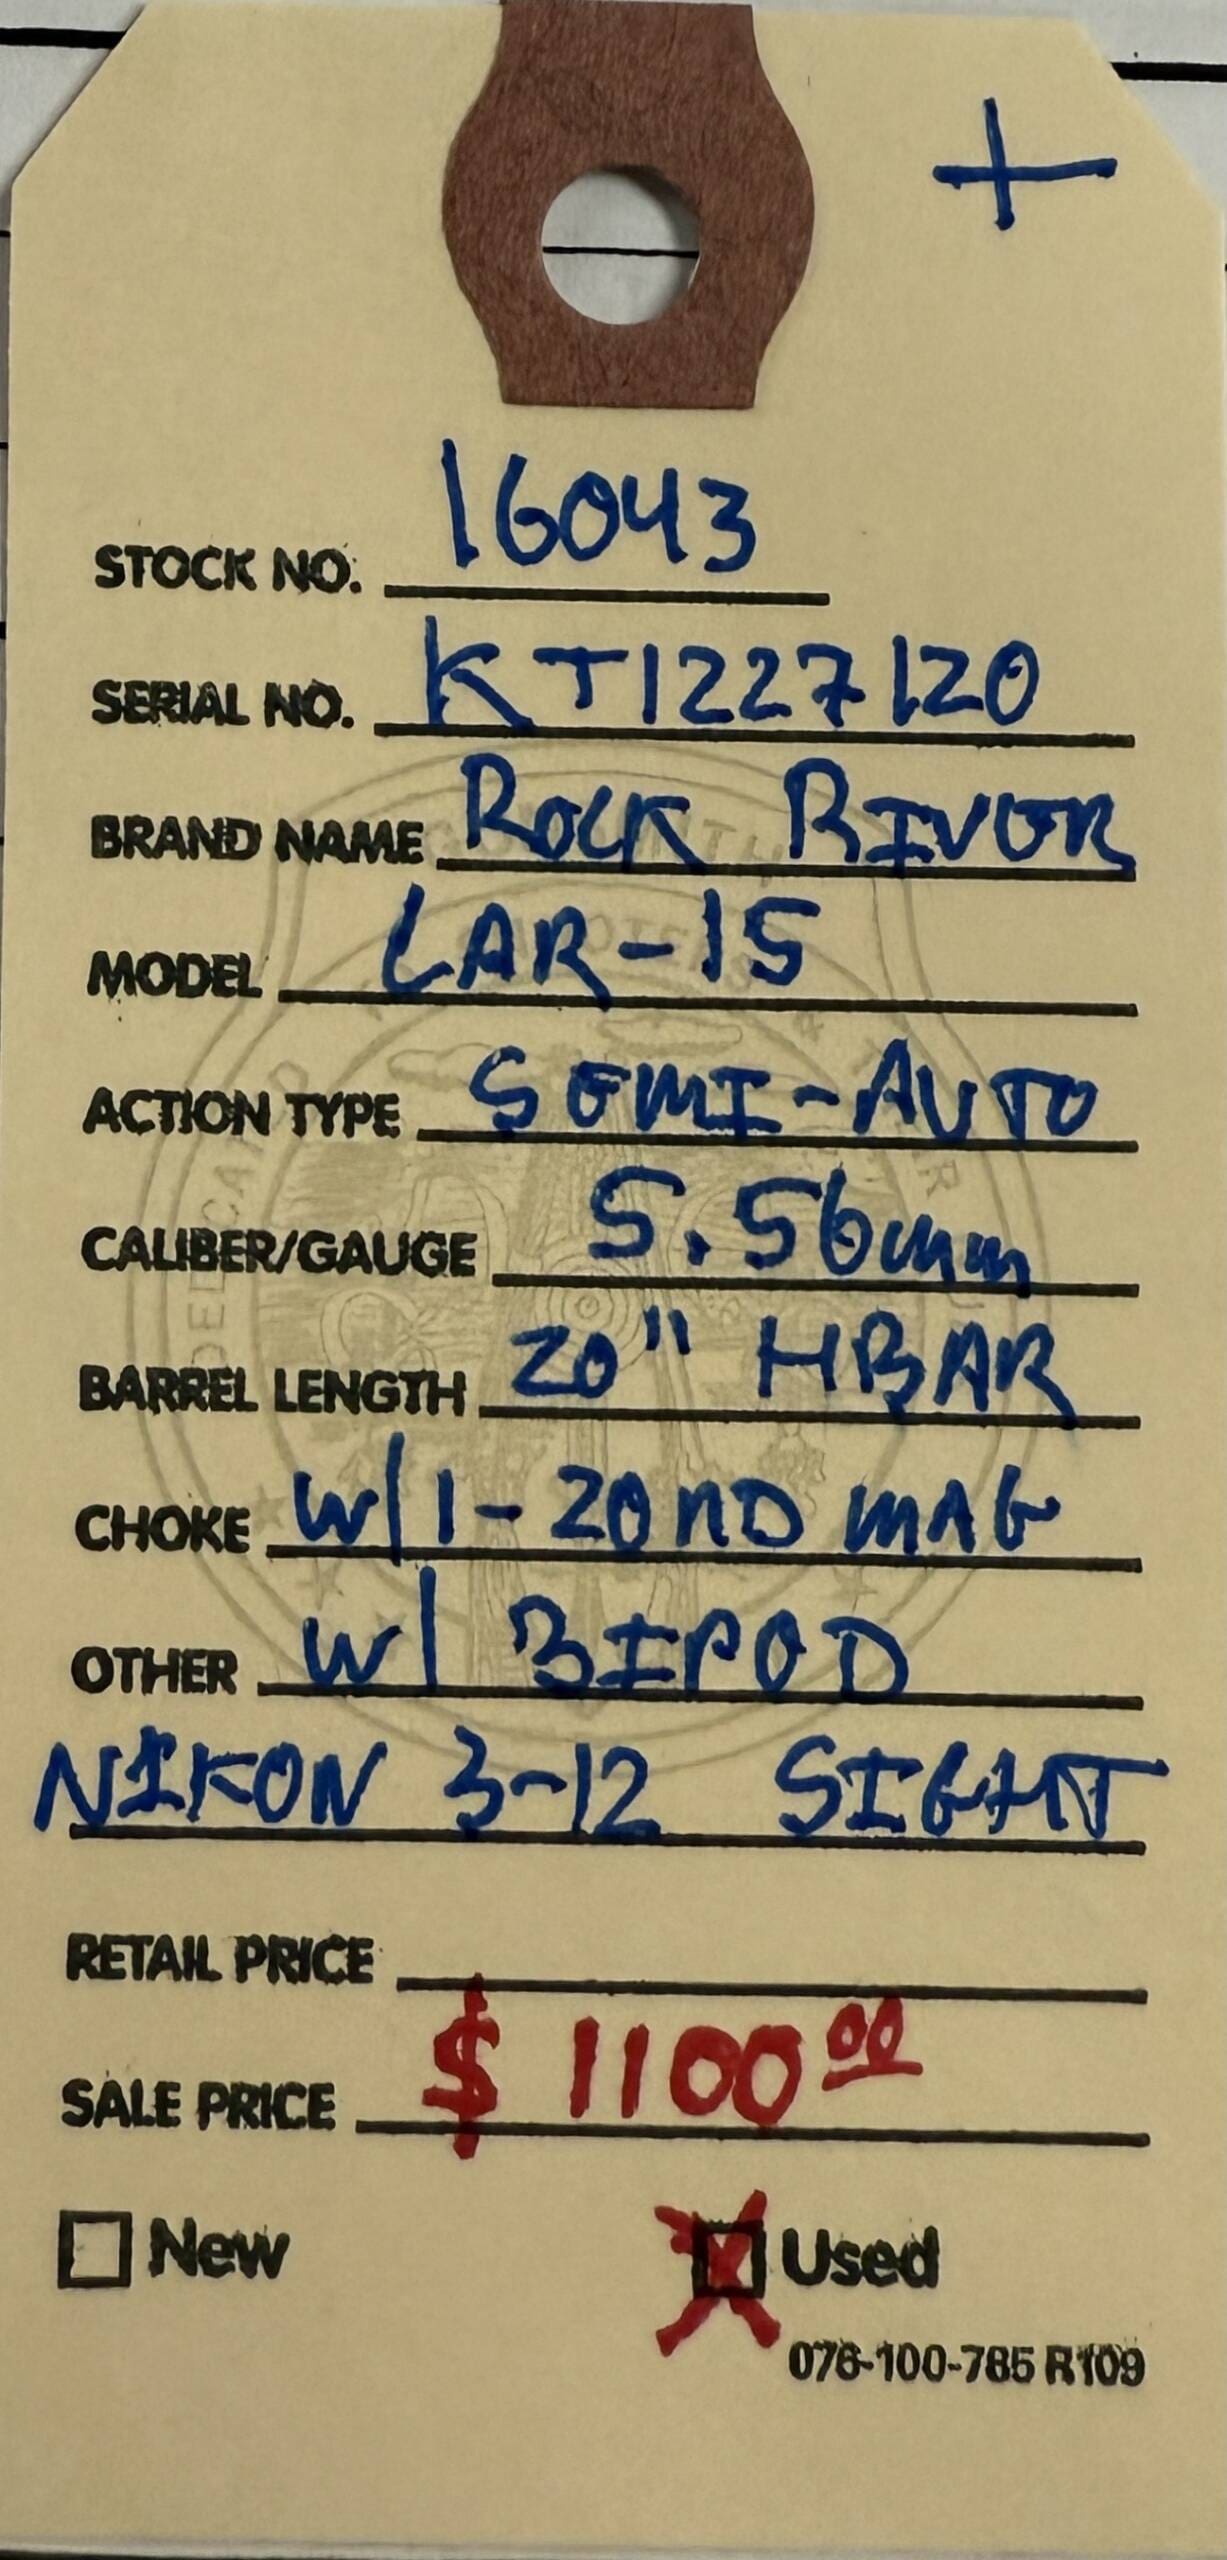 +
STOCK NO. 16043
SERIAL NO. KT1227120
BRAND NAME ROCK RIVER
MODEL LAR-15
ACTION TYPE SEMI-AUTO
CALIBER/GAUGE 5.56mm
BARREL LENGTH 20" HBAR
CHOKE W/1-20RD MAG
OTHER W/ BIPOD
NIKON 3-12 SIGHT
RETAIL PRICE
SALE PRICE $1100 00
New X Used
076-100-785 R109